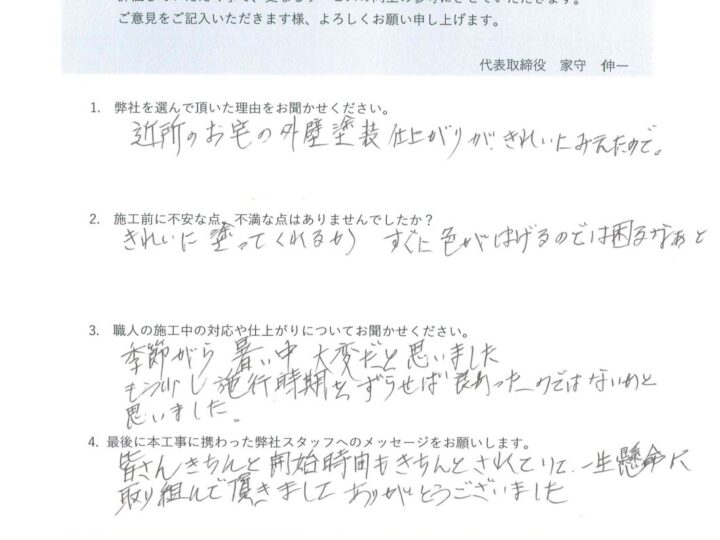 ご意見をご記入いただきます様、よろしくお願い申し上げます。
代表取締役 家守 伸一
1. 弊社を選んで頂いた理由をお聞かせください。
近所のお宅の外壁塗装仕上がりが、きれいにみえたので。
2. 施工前に不安な点、不満な点はありませんでしたか？
きれいに塗ってくれるか すぐに色がはげるのでは困るなぁと
3. 職人の施工中の対応や仕上がりについてお聞かせください。
季節がら暑い中大変だと思いました
もう少し施行時期をずらせば良かったのではないかと
思いました。
4. 最後に本工事に携わった弊社スタッフへのメッセージをお願いします。
皆さんきちんと開始時間もきちんとされていて、一生懸命に
取り組んで頂きまして ありがとうございました